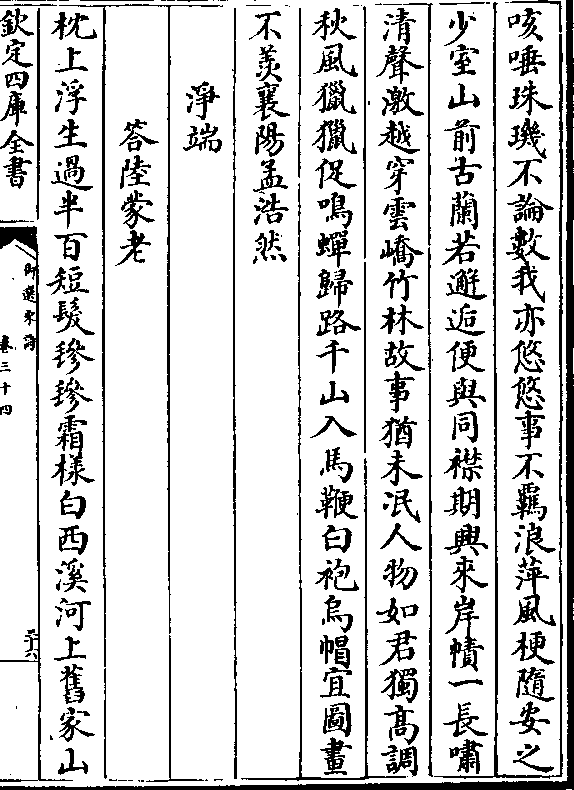 咳唾珠璣不論數我亦悠悠事不羈浪萍風梗隨安之
少室山前古蘭若邂逅便與同襟期興來岸幘一長嘯
清聲激越穿雲嶠竹林故事猶未泯人物如君獨高調
秋風獵獵促鳴蟬歸路千山入馬鞭白袍烏帽宜圖畫
不羨襄陽孟浩然
淨端
答陸蒙老
枕上浮生過半百短髮𣯶𣯶霜樣白西溪河上舊家山
欽定四庫全書
御選宋詩
卷三十四
三十六